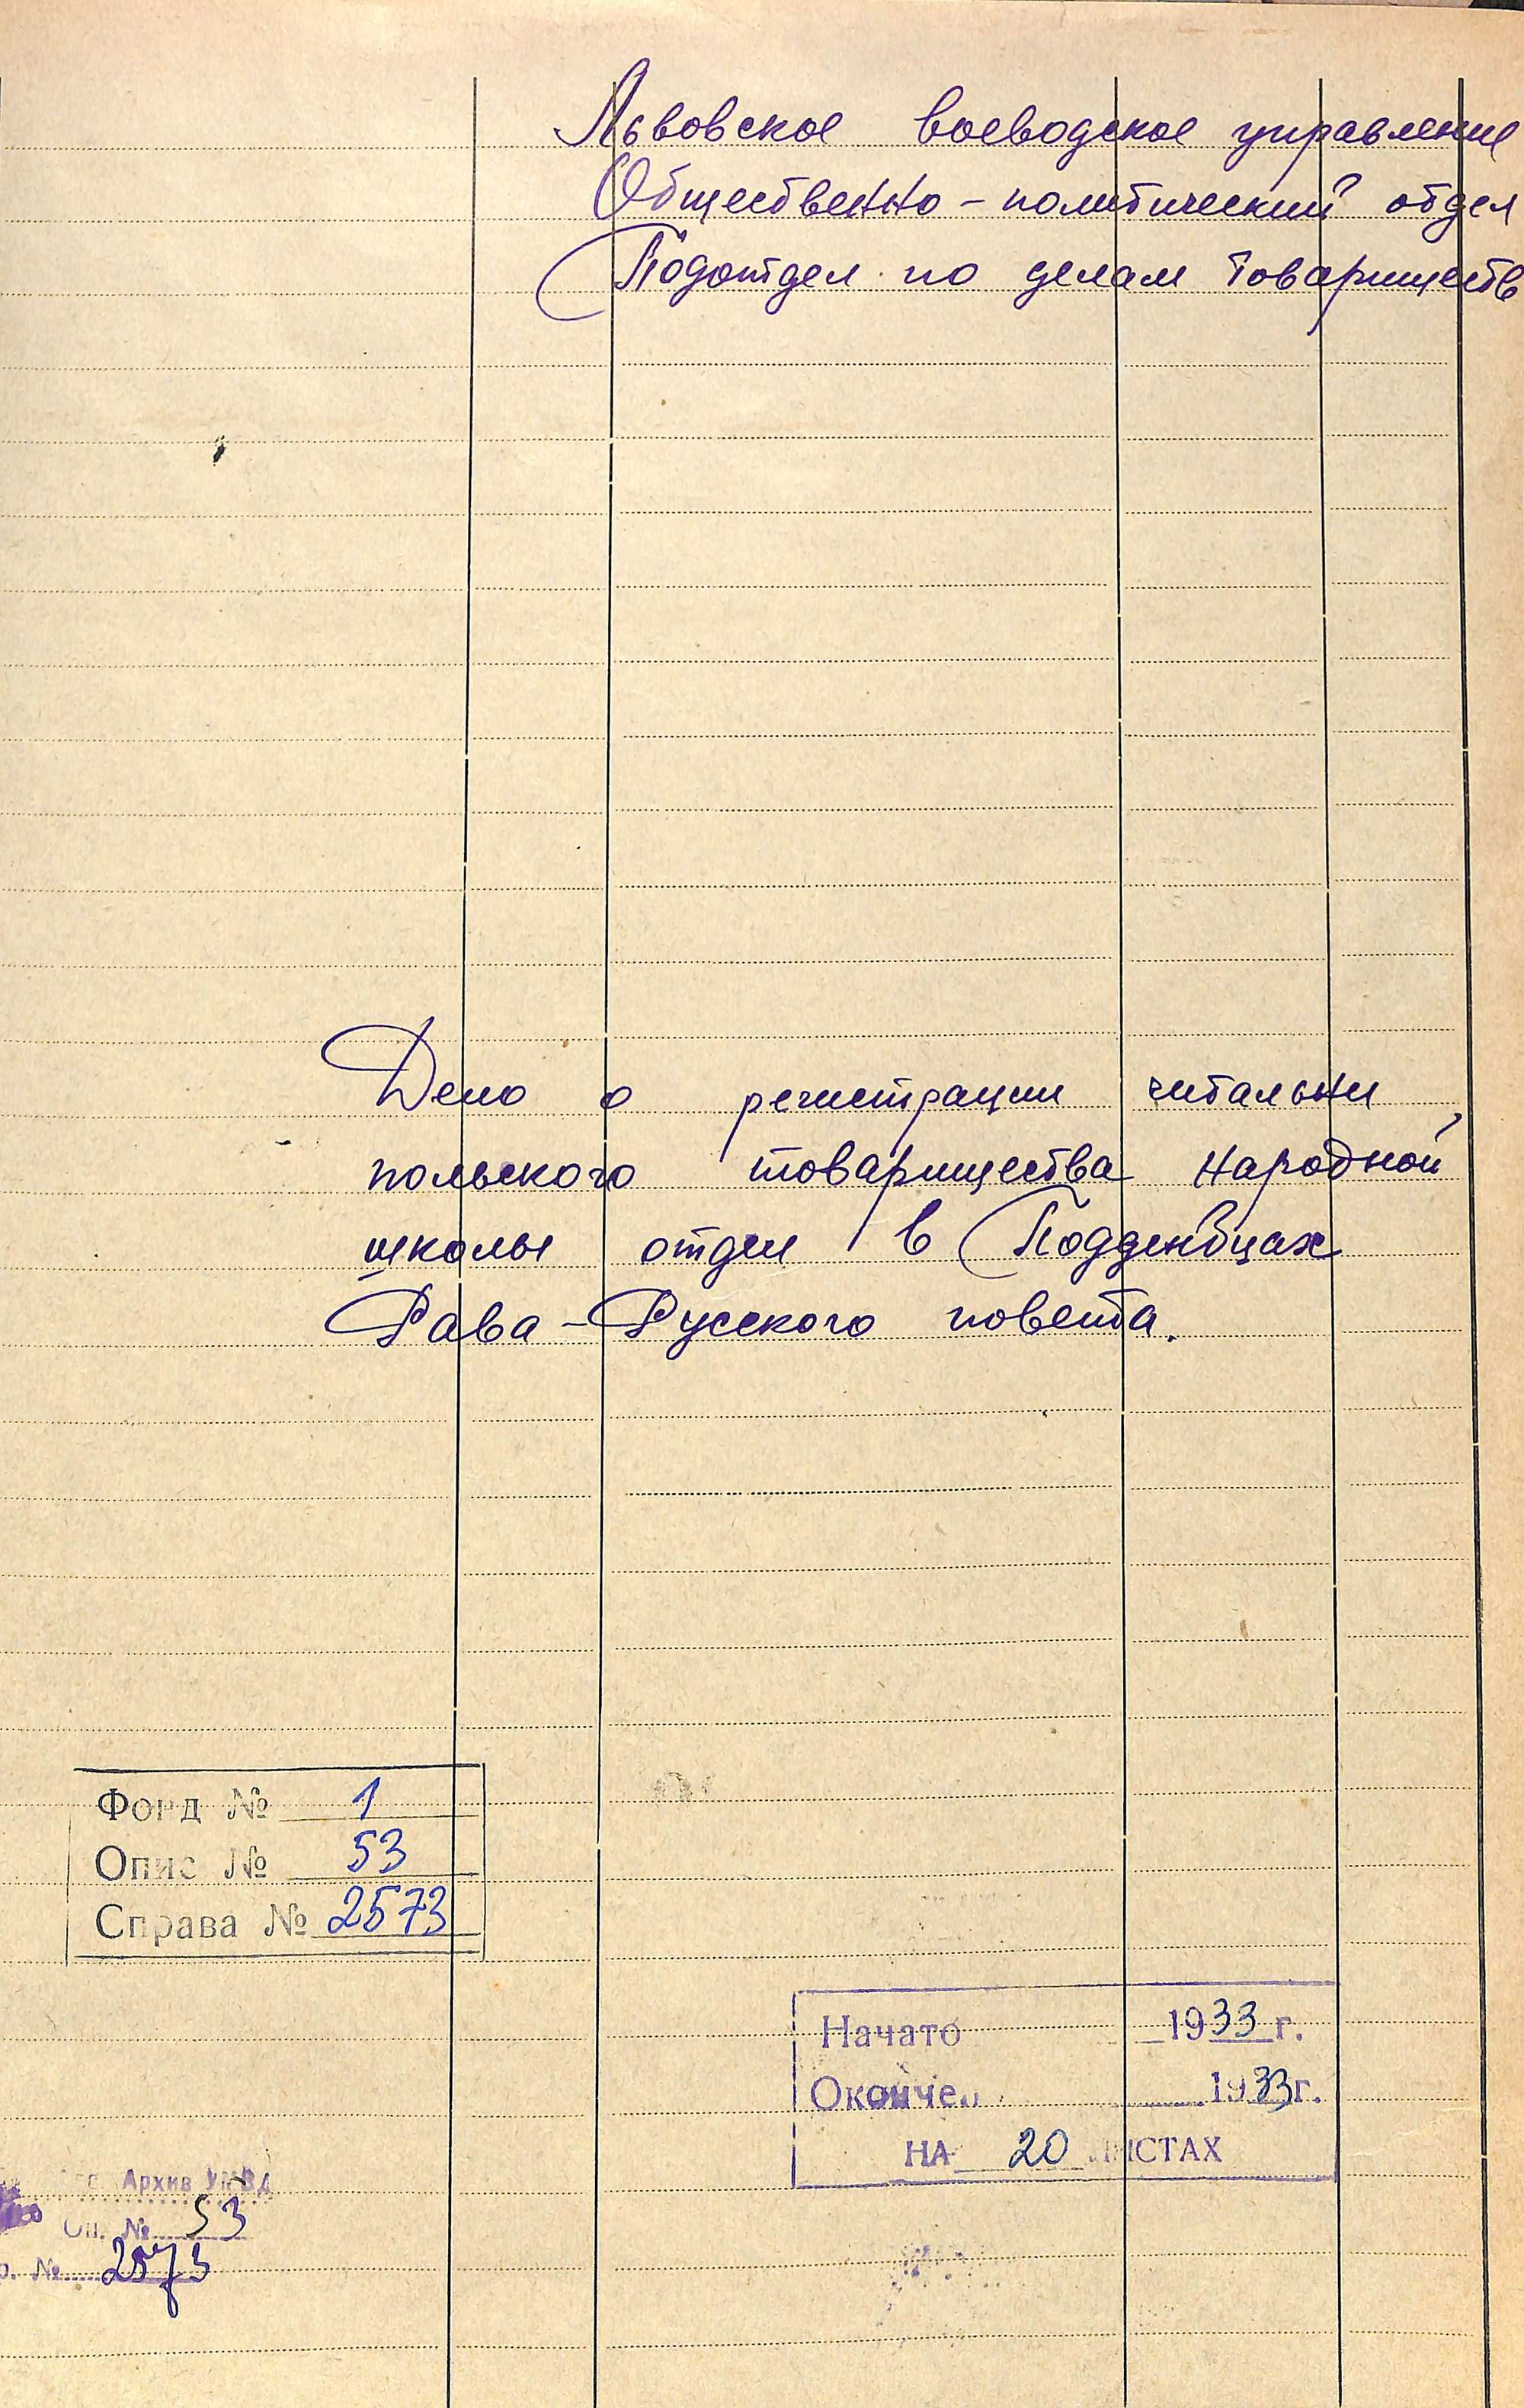 Львовское воеводское управление
Общественно - политический отдел
Подотдел по делам товариществ
Дело о регистрации читальни
польского товарищества народной
школы отдел в Поддембцах
Рава - Русского повета.
Фонд № 1
Опис № 53
Справа № 2573
Начато 1933 г.
Оконче 1933 г.
НА 20 ЛИСТАХ
Архив УМВД
Оп. № 53
№ 2573